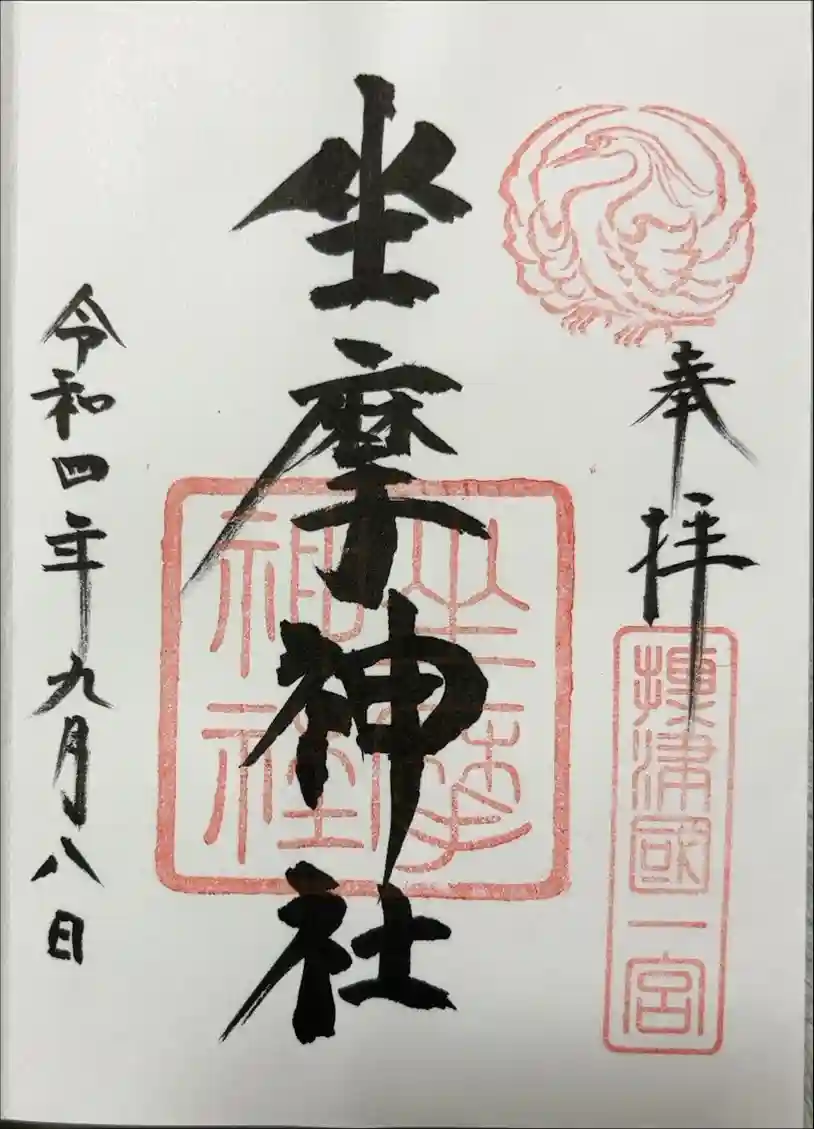 奉拝
攝津國一宮
坐摩神社
坐摩
神社
令和四年九月八日